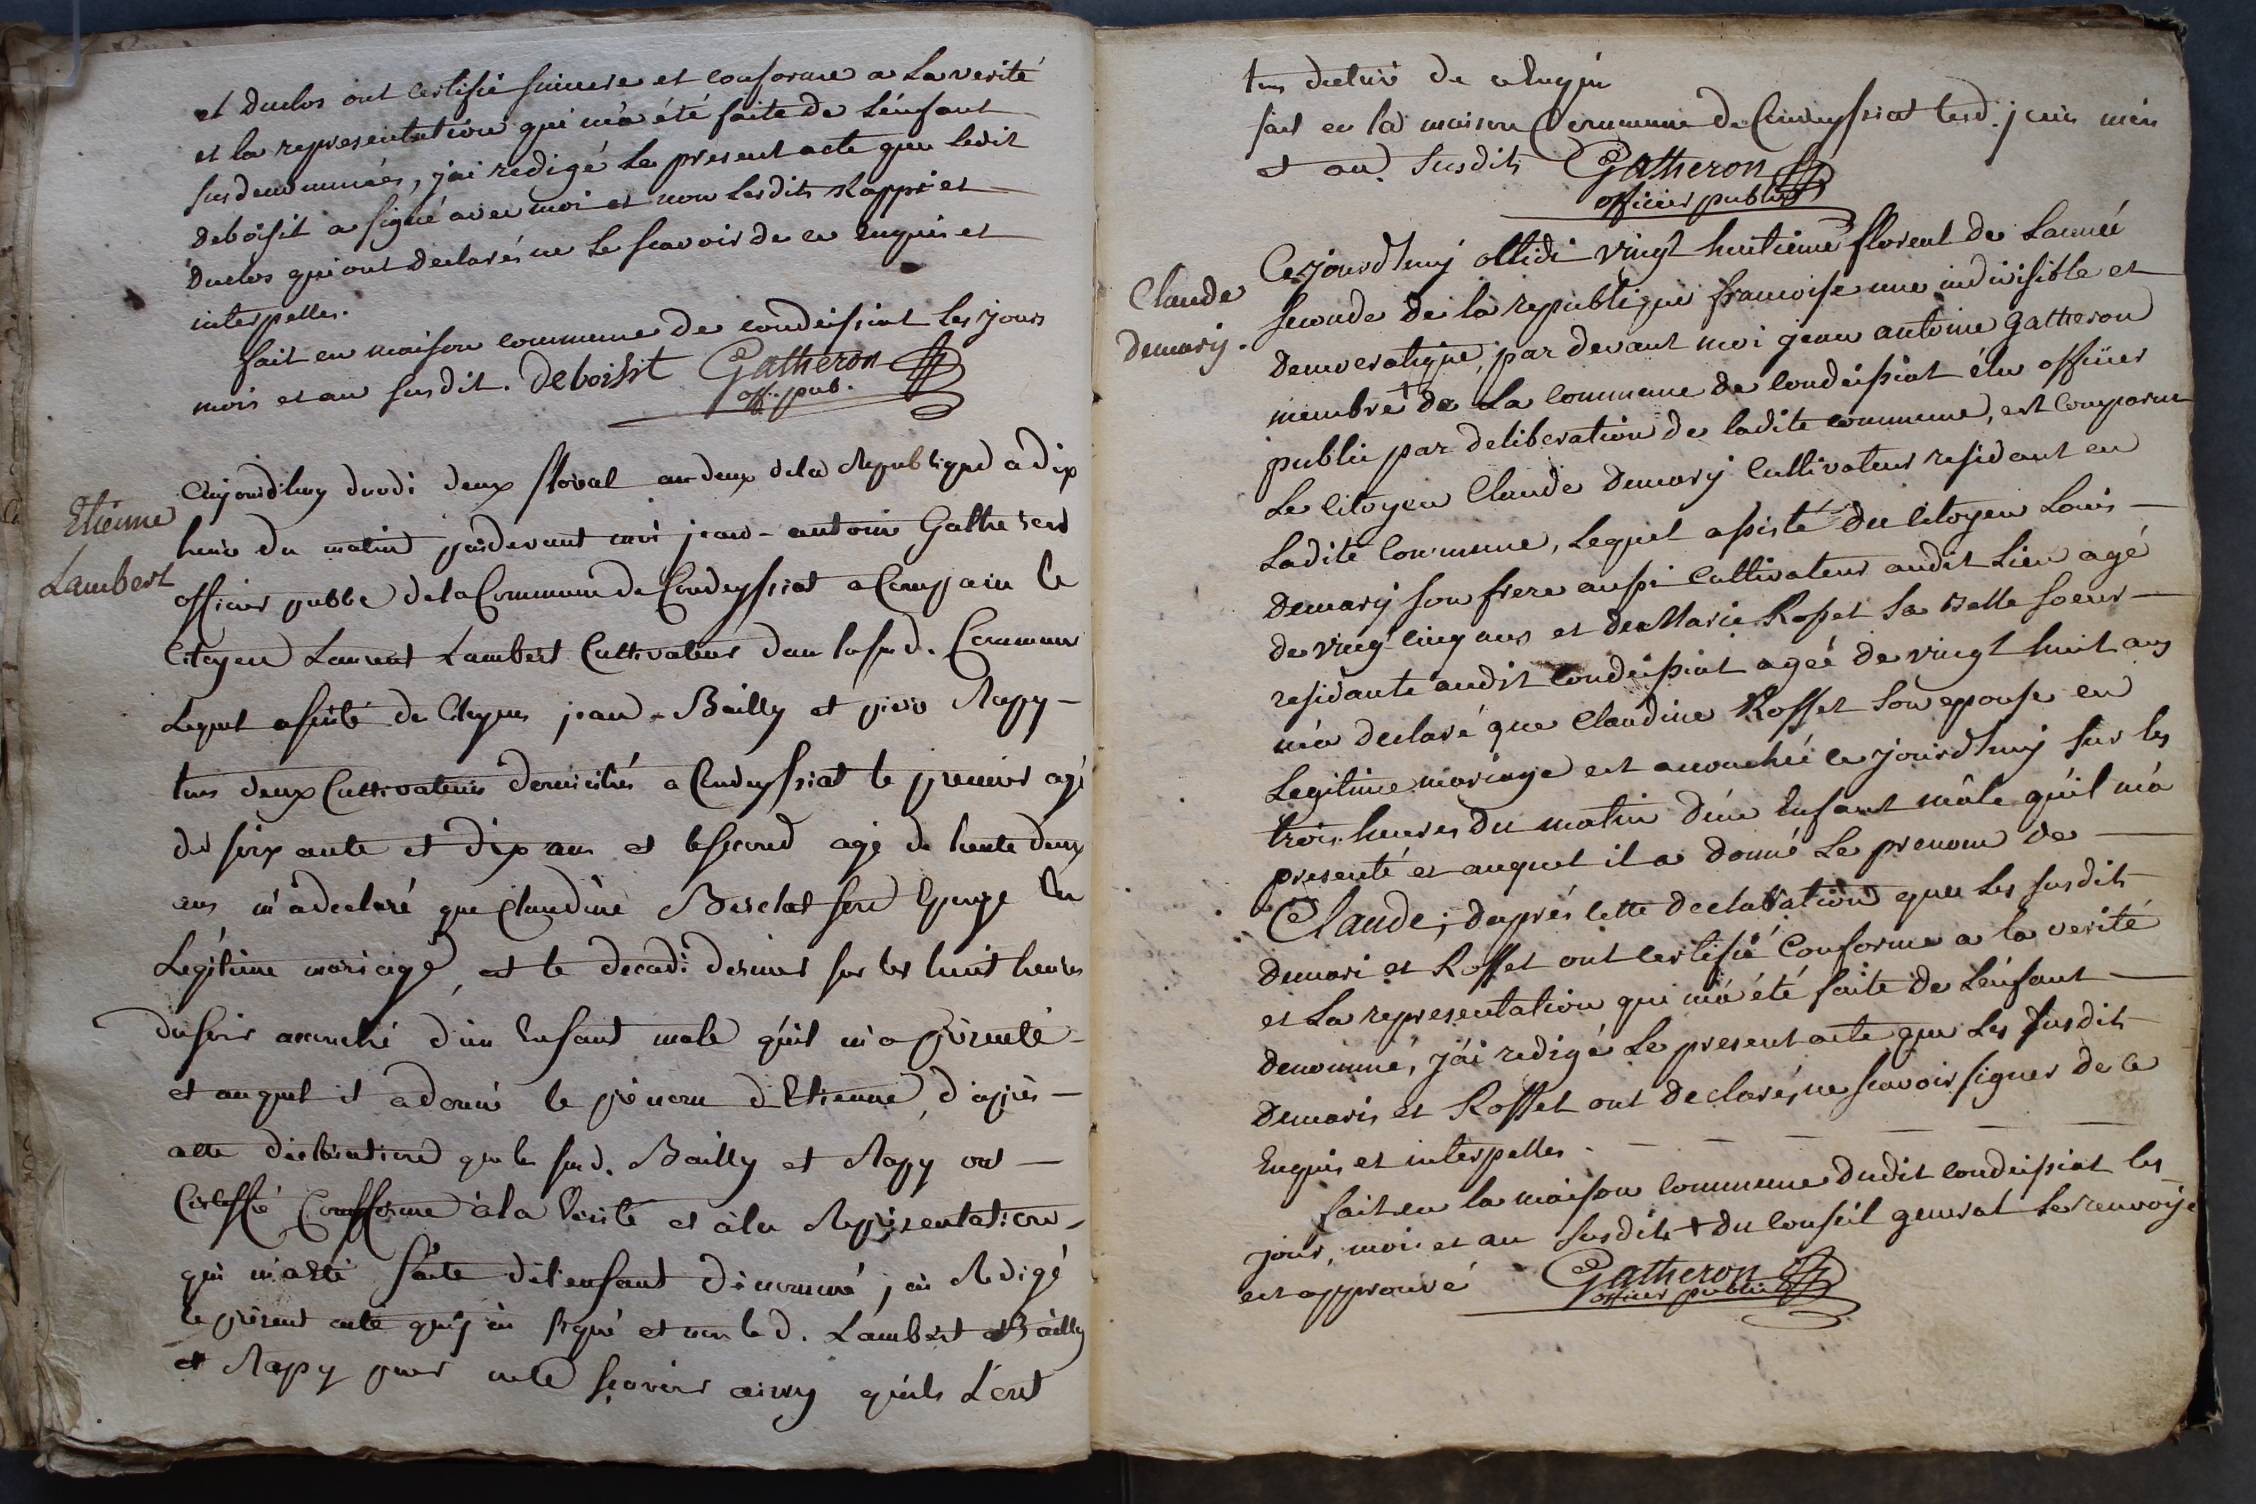 et duclos ont Certifié sincere et conforme a la verité
et la representation qui m'a été faite de L'énfant
susdenommées, j'ai redigé le present acte que ledit
deboisit a signé avec moi et non lesdits Rappi et
duclos qui ont declarés ne le scavoir de ce enquis et
interpelles.
fait en maison commune de condeissiat les jours
mois et an susdit. deboisit Gatheron
off. pub.
Etienne
Lambert
Aujourdhuy duodi deux floral an deux de la Republique a dix
heure du matin pardevant moi jean-antoine Gatheron
officier publc de la Commune de Condeyssiat a Comparu le
Citoyen Laurent Lambert Cultivateur dans lasusd. Commune
Lequel assisté de Citoyens jean Bailly et Rapy
tous deux Cultivateurs domiciliés a Condeyssiat le premier agé
de soixante et dix ans et le second agé de trente deux
ans m'a declaré que Claudine son Epouze En
Légitime mariage, est le decadi dernier sur les huit heures
du soir accouché d'un Enfant male qu'il m'a présenté
et auquel il a donné le prénom d'Etienne, d'après
cette déclaration que les susd. Bailly et Rapy ont
Certiffié Confforme à la Verité et à la Représentation
qui m'a Eté faite de l'enfant dénommé j'ai Redigé
le présent acte que j'ai signé et non led. Lambert et Bailly
et Rapy pour ne le sçavoir ainsy qu'ils L'ont
tous declaré de enquis
fait en la maison Commune de Condeyssiat lesd. jour mois
et an susdits Gatheron
officier public
Claude
Demary.
Cejourdhuy oltidi vingt huitieme floreal de Lannée
seconde de la republique francoise une indivisible et
Democratique, par devant moi jean antoine Gatheron
membre + de La commune de condeissiat élu officier
public par deliberation de ladite commune, est Comparu
Le Citoyen Claude Demary Cultivateur residant en
Ladite Commune, Lequel assisté du Citoyen Louis
Demary son frere aussi Cultivateur audit Lieu agé
de vingt cinq ans et de Marie Rosset sa belle soeur
residante audit Condeissiat agée de vingt huit ans
m'a declaré que Claudine Rosset son epouse en
Legitime mariage est accouchée cejourdhuy sur les
trois heures du matin d'un Enfant mâle qu'il m'a
presenté et auquel il a donné Le prenom de
Claude; daprés cette declaration que Les susdits
Demari et Rosset ont certifié Conforme a la verité
et La representation qui m'a été faite de L'énfant
denommé, j'ai redigé Le present acte que Les susdits
Demaris et Rosset ont declarés ne scavoir signer de ce
Enquis et interpelles.
fait en la maison commune dudit condeissiat les
jour, mois et an susdits + du Conseil general le renvoye
est approuvé Gatheron
officier public